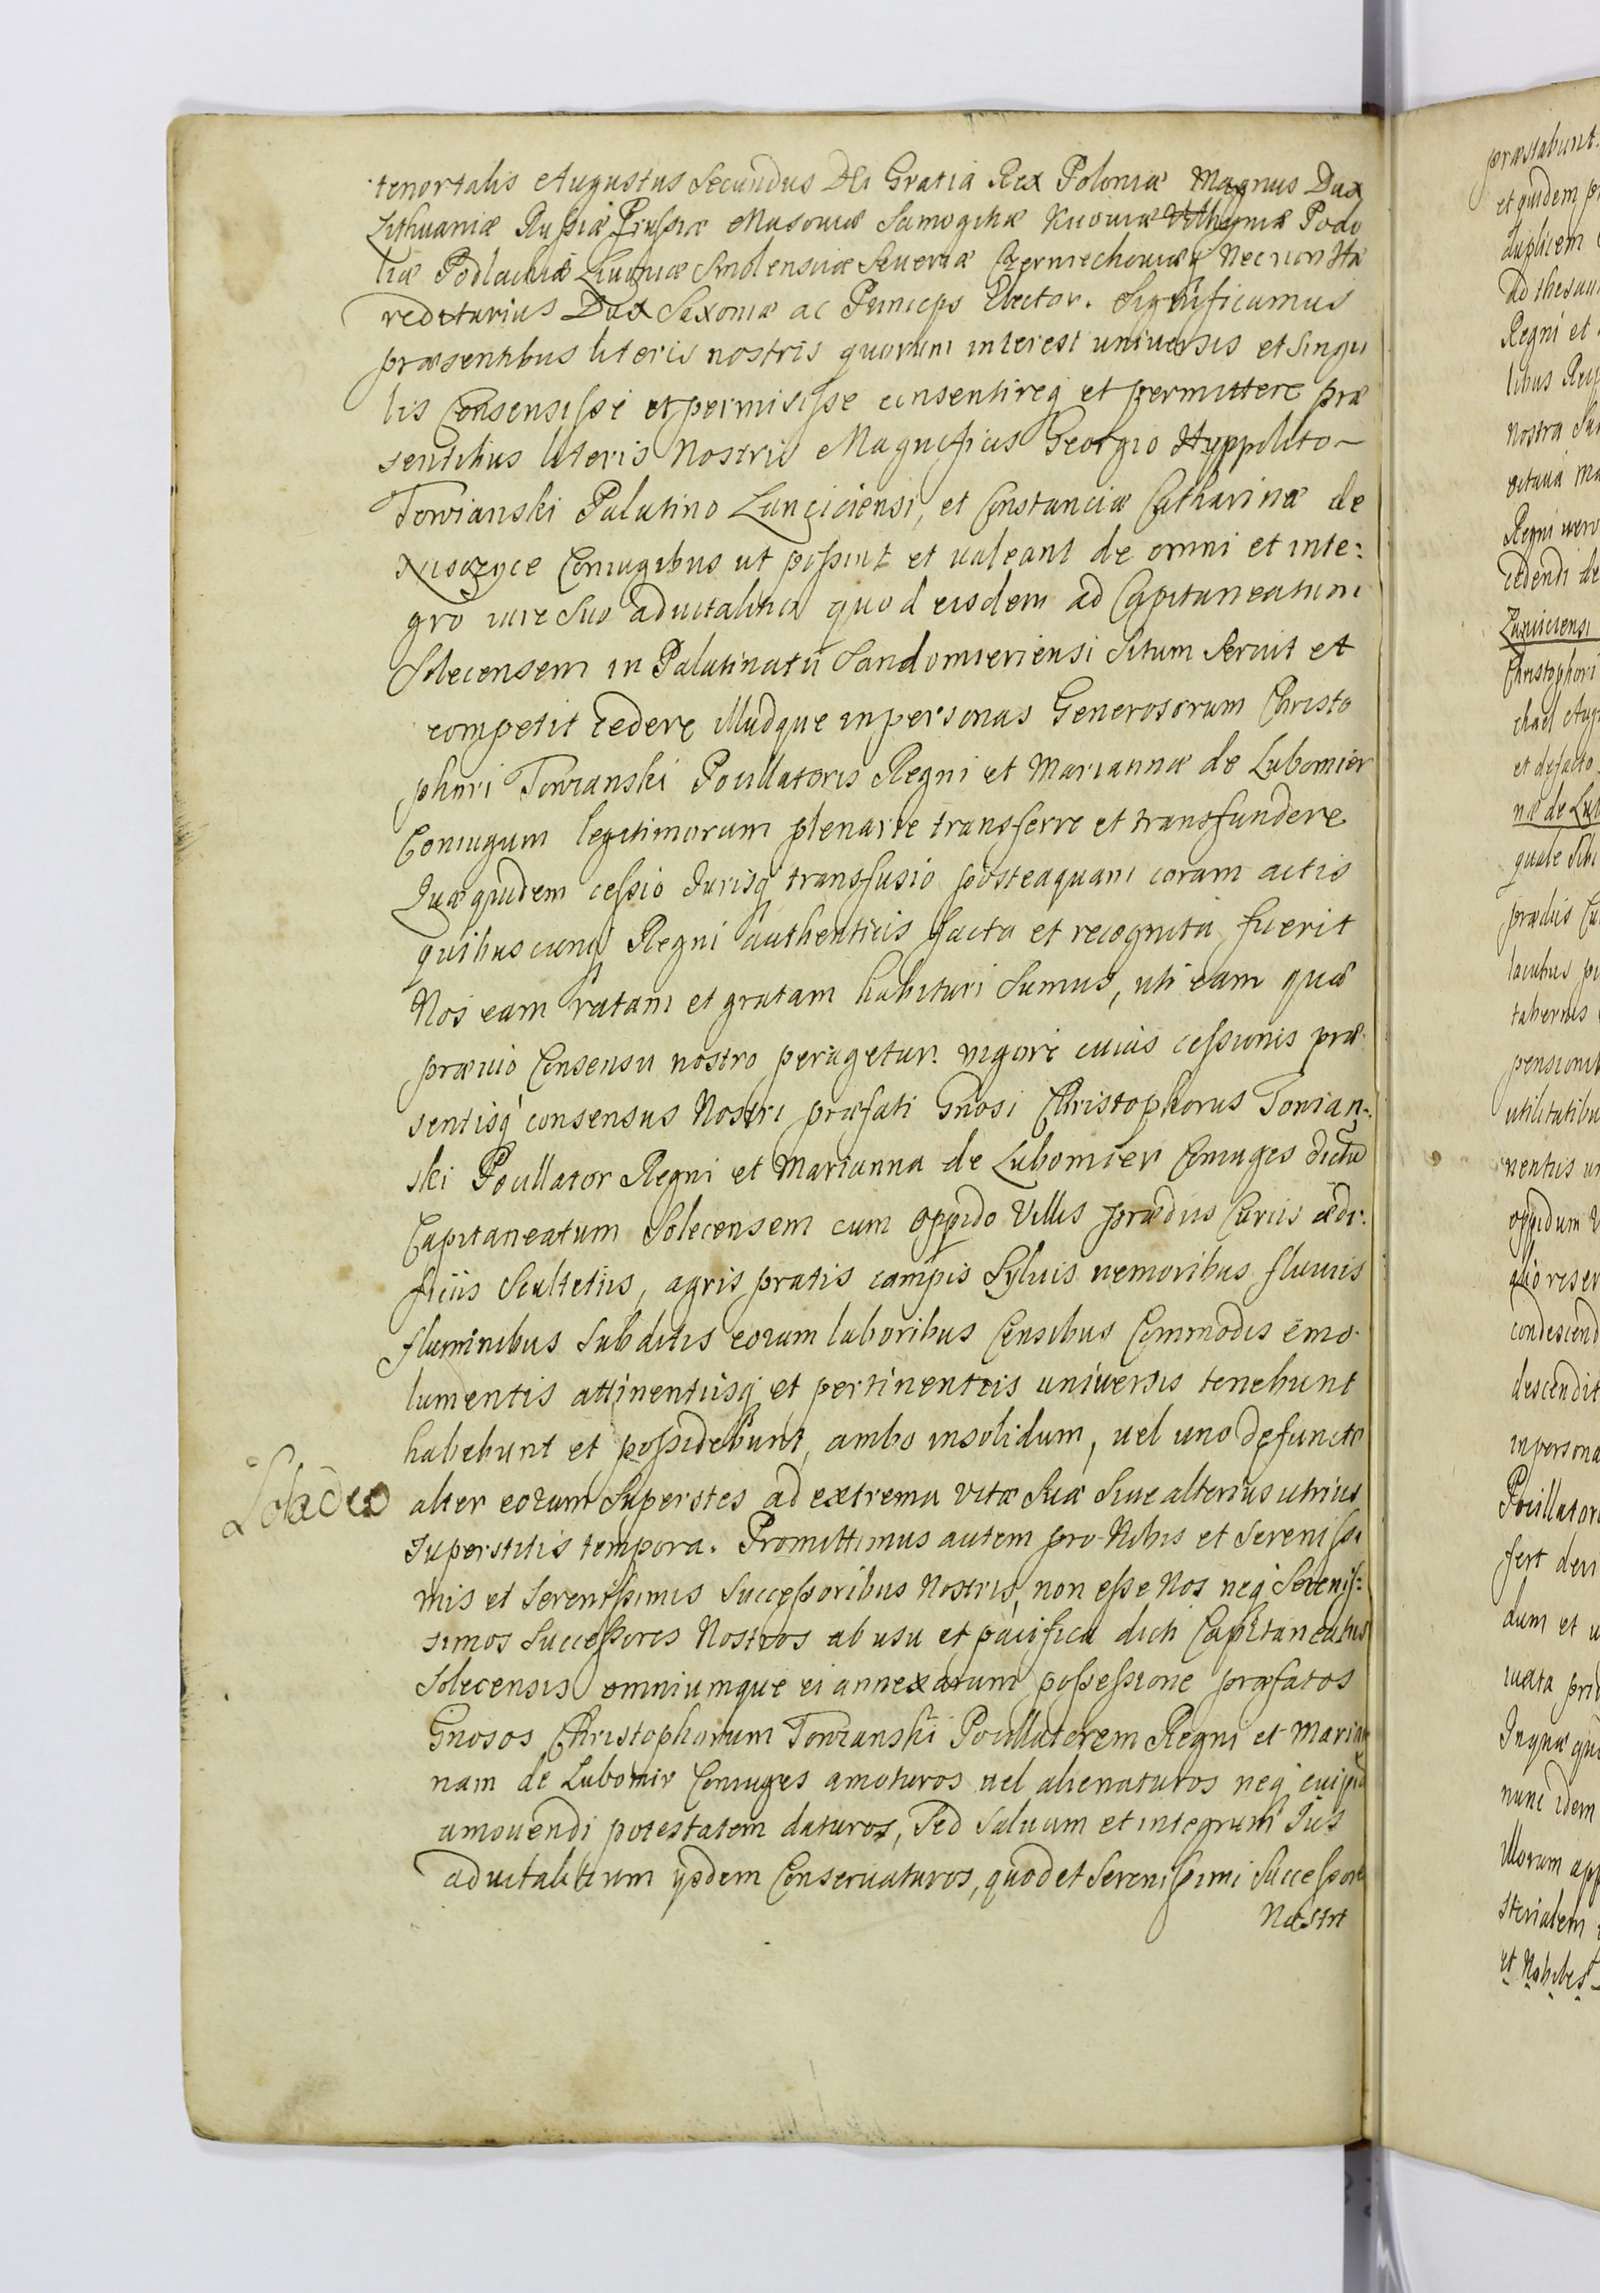 tenortalis Augustus Secundus Dei Gratia Rex Poloniæ Magnus Dux
Lithuaniæ Russiæ Prussiæ Masoviæ Samogitiæ Kijoviæ Volhyniæ Podo
liæ Podlachiæ Livoniæ Smolensciæ Severiæ Czerniechoviæq Nec non Hæ
reditarius Dux Saxoniæ ac Princeps Elector. Significamus
præsentibus literis nostris quorum interest universis et singu
lis Consensisse et permisisse consentireq et permittere præ
sentibus literis Nostris Magnificis Georgio Hyppolito
Towianski Palatino Lanciciensi, et Constanciæ Catharinæ de
Coniugibus ut possint et valeant de omni et inte:
gro iure suo aduitalitio quod eisdem ad Capitaneatum
Solecensem in Palatinatu Sandomieriensi Situm Seruit et
competit cedere illudque in personas Generosorum Christo
phori Towianski Pocillatoris Regni et Mariannæ de Lubomier
Coniugum legitimorum plenarie transferre et transfundere
Quæ quidem cessio Jurisq transfusio posteaquam coram actis
quibuscunq Regni authenticis facta et recognita fuerit
Nos eam ratam et gratam habituri sumus, uti eam quæ
præuio Consensu nostro peragetur. vigore cuius cessionis præ
sentisq consensus Nostri præfati Gnosi Christophorus Towian:
ski Pocillator Regni et Marianna de Lubomier Coniuges dictū
Capitaneatum Solecensem cum oppido Villis prædiis Curiis ædi:
ficiis Scultetiis, agris pratis campis Sylvis nemoribus fluuiis
fluminibus Subditis eorum laboribus Censibus Commodis emo
lumentis attinentiisq et pertinentiis universis tenebunt
habebunt et possidebunt, ambo insolidum, uel uno defuncto
alter eorum Superstes ad extrema vitæ Suæ Siue alterius utrius
superstitis tempora. Promittimus autem pro Nobis et Serenissi
mis et Serenissimis Successoribus Nostris, non esse Nos neq Serenis:
simos Successores Nostros ab usu et pacifica dicti Capitaneatus
Solecensis omniumque ei annexarum possessione præfatos
Gnosos Christophorum Towianski Pocillatorem Regni et Marian
nam de Lubomir Coniuges amoturos uel alienaturos neq cuipiā
amouendi potestatem daturos, Sed Saluum et integrum Jus
aduitalitium ysdem Conseruaturos, quod et Serenissimi Successores
Nostri
præstabunt.
et quidem
duplicem
Regni et
nostra
Regni vero
cedendi de
Christophori
et defacto
quale sibi
tabernis
oppidum
in persona
dum et
nunc idem
Illorum